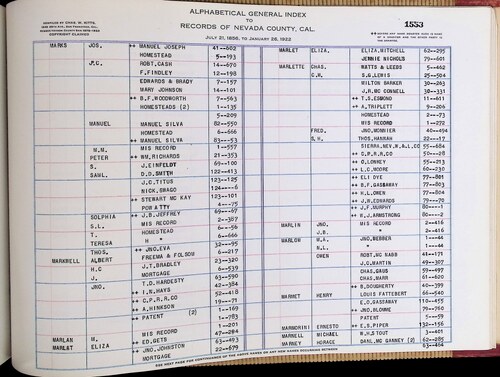 COMPILED BY CHAS. M. SITTS
COPYRIGHT CLAIMED
ALPHABETICAL GENERAL INDEX
TO
RECORDS OF NEVADA COUNTY, CAL.
JULY 21, 1856, TO JANUARY 28, 1922
1553
MARKS JOS. ++ MANUEL JOSEPH 41--602 MARLET ELIZA. ELIZA.MITCHELL 62--295
HOMESTEAD 5--193 JENNIE NICHOLS 79--601
J.C. ROBT.CASH 14--676 MARLETTE CHAS. WATTS & LEEDS 5--462
F.FINDLEY 12--198 C.H. S.G.LEWIS 25--504
EDWARDS & BRADY 7--157 MILTON BARKER 30--263
MARY JOHNSON 14--101 J.R.MC CONNELL 30--331
++ B.F.WOODWORTH 7--563 ++ T.S.EDMOND 11--691
++ HOMESTEADS (2) 1--135 ++ A.TRIPLETT 9--206
5--209 HOMESTEAD 2--73
MANUEL MANUEL SILVA 82--550 MIS RECORD 1--272
HOMESTEAD 6--666 FRED. JNO.MONNIER 40--494
++ MANUEL SILVA 83--53 S.H. THOS.HANNAH 22--17
W.M. MIS RECORD 1--557 SIERRA.NEV.W.&L.CO 55--684
PETER ++ WM.RICHARDS 21--353 ++ C.P.R.R.CO 55--28
S. J.EINFELDT 69--100 ++ O.LONKEY 55--213
SAML. D.D.SMITH 122--413 ++ L.C.MOORE 60--230
J.C.TITUS 123--125 ++ ELI DYE 77--801
NICK.SMAGO 124--6 ++ B.F.GASSAWAY 77--803
++ STEWART MC KAY 123--101 ++ H.L.OWEN 77--804
POW ATTY 4--75 ++ J.H.EDWARDS 79--70
SOLPHIA ++ J.B.JEFFREY 69--67 ++ J.F.MURPHY 80--1
S.L. MIS RECORD 2--307 ++ W.J.ARMSTRONG 80--2
T. HOMESTEAD 6--56 MARLIN JNO. MIS RECORD 2--416
TERESA H " 6--666 J.B. " 2--416
THOS. ++ JNO.EVA 32--95 MARLOW W.A. ++ JNO.WEBBER 1--44
MARKWELL ALBERT FREEMA & FOLSOM 6--217 N.L. " 1--44
H.C J.T.BRADLEY 23--320 OWEN ROBT.MC NABB 41--171
J. MORTGAGE 6--539 J.C.MARTIN 49--307
JNO. T.D.HARDESTY 63--590 CHAS.GAUS 59--497
++ I.N.HAYS 42--384 CHAS.MARR 61--620
++ C.P.R.R.CO 52--418 ++ B.DOUGHERTY 40--399
++ A.HINKSON 19--71 MARMET HENRY LOUIS FATTEBERT 66--540
PATENT (2) 1--169 E.O.GASSAWAY 110--455
1--783 ++ JNO.BLOWNE 79--760
MARLAN M. MIS RECORD 1--201 PATENT 5--59
++ ED.GETS 47--284 MARMORINI ERNESTO ++ E.S.PIPER 132--156
MARLAT ELIZA ++ JNO.JOHNSTON 63--493 MARNELL MICHAEL R.H.STOUT 1--401
MORTGAGE 22--679 MARNEY HORACE DANL.MC GANNEY (2) 62--285
63--464